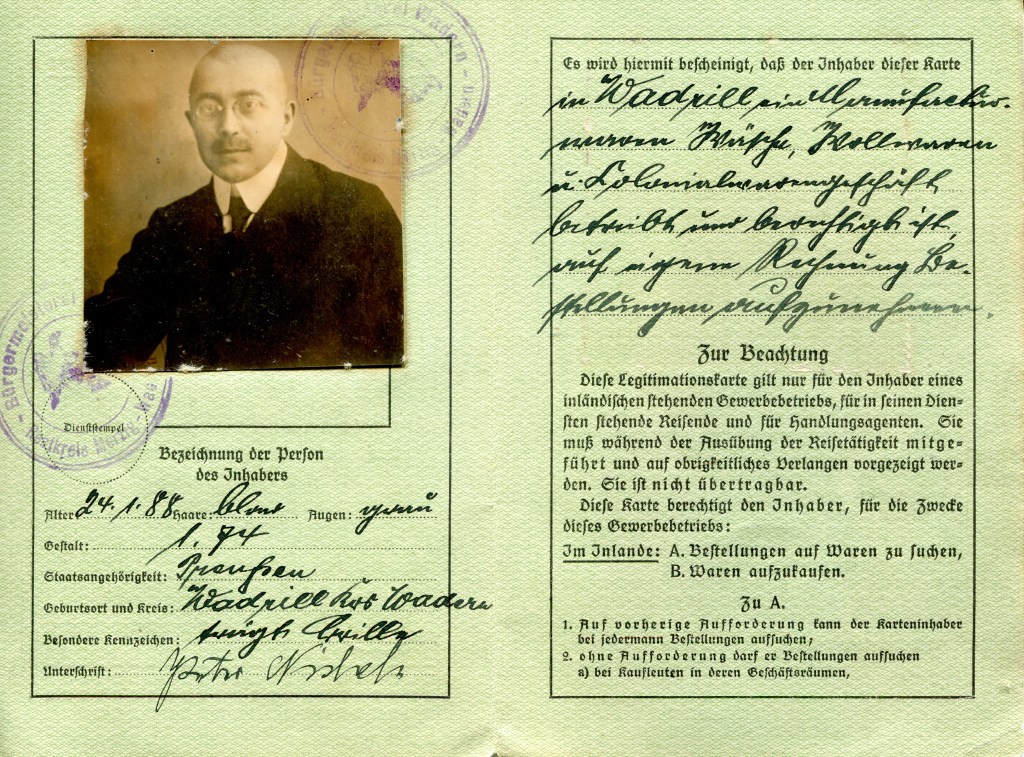 Bürgermeisterei Wadern
Bürgermeisterei Wad
Restkreis Merzig
Dienststempel
Bezeichnung der Person
des Inhabers
Alter 24.1.88 Haare: blond Augen: grau
Gestalt: 1.74
Staatsangehörigkeit: Preußen
Geburtsort und Kreis: Wadrill Krs Wadern
Besondere Kennzeichen: trägt Brille
Unterschrift: Peter
Es wird hiermit bescheinigt, daß der Inhaber dieser Karte
in Wadrill ein Manufactur-
waren Wäsche, Wollwaren
u. Colonialwarengeschäft
betreibt und berechtigt ist,
auf eigene Rechnung Be-
stellungen aufzunehmen.
Zur Beachtung
Diese Legitimationskarte gilt nur für den Inhaber eines
inländischen stehenden Gewerbebetriebs, für in seinen Dien-
sten stehende Reisende und für Handlungsagenten. Sie
muß während der Ausübung der Reisetätigkeit mitge-
führt und auf obrigkeitliches Verlangen vorgezeigt wer-
den. Sie ist nicht übertragbar.
Diese Karte berechtigt den Inhaber, für die Zwecke
dieses Gewerbebetriebs:
Im Inlande: A. Bestellungen auf Waren zu suchen,
B. Waren aufzukaufen.
Zu A.
1. Auf vorherige Aufforderung kann der Karteninhaber
bei jedermann Bestellungen aufsuchen;
2. ohne Aufforderung darf er Bestellungen aufsuchen
a) bei Kaufleuten in deren Geschäftsräumen,